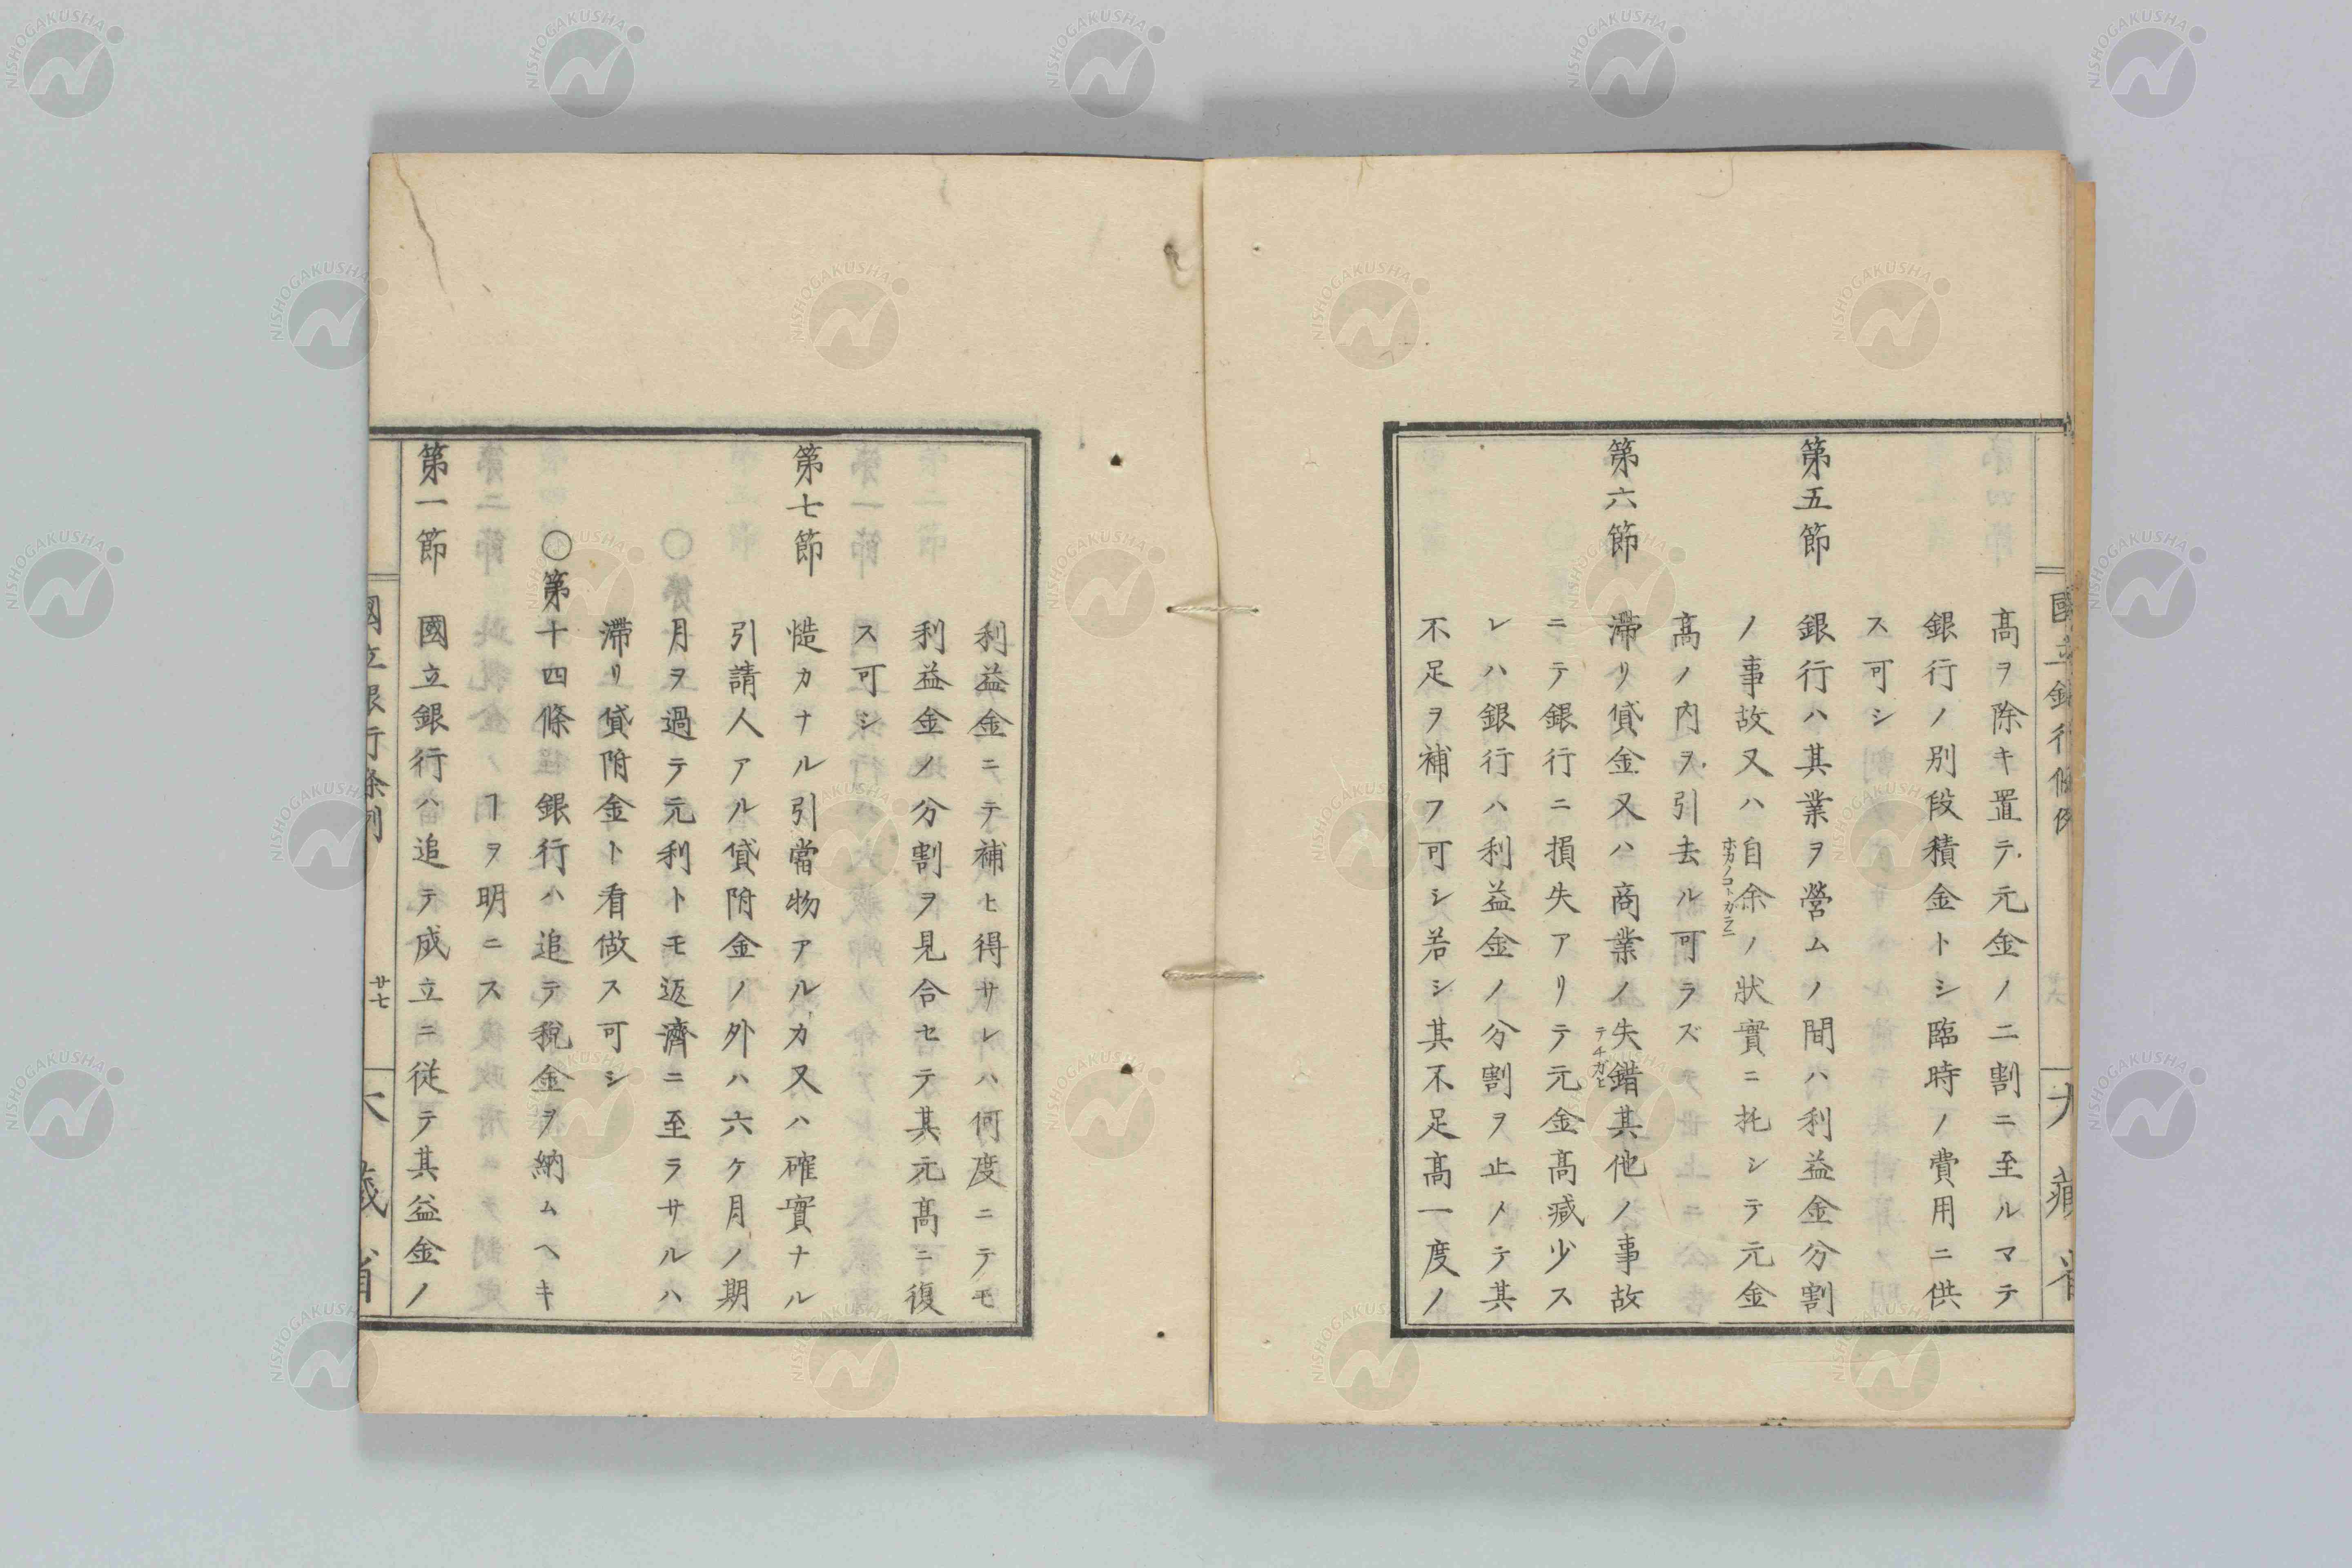 國立銀行條例
大藏省
高ヲ除キ置テ元金ノ二割ニ至ルマテ
銀行ノ別段積金トシ臨時ノ費用ニ供
ス可シ
第五節 銀行ハ其業ヲ營ムノ間ハ利益金分割
ノ事故又ハ自余ノ狀實ニ托シテ元金
ホカノコトガラニ
高ノ内ヲ引去ル可ラズ
第六節 滯リ貸金又ハ商業ノ失錯其他ノ事故
テチガヒ
ニテ銀行ニ損失アリテ元金高減少ス
レハ銀行ハ利益金ノ分割ヲ止ノテ其
不足ヲ補フ可シ若シ其不足高一度ノ
利益金ニテ補ヒ得サレハ何度ニテモ
利益金ノ分割ヲ見合セテ其元高ニ復
ス可シ
第七節 慥カナル引當物アルカ又ハ確實ナル
引請人アル貸附金ノ外ハ六ケ月ノ期
月ヲ過テ元利トモ返濟ニ至ラサルハ
滯リ貸附金ト看做ス可シ
○第十四條 銀行ハ追テ税金ヲ納ムヘキ
ヿヲ明ニス
第一節 國立銀行ハ追テ成立ニ從テ其益金ノ
國立銀行條例
廿七
大藏省
NISHOGAKUSHA